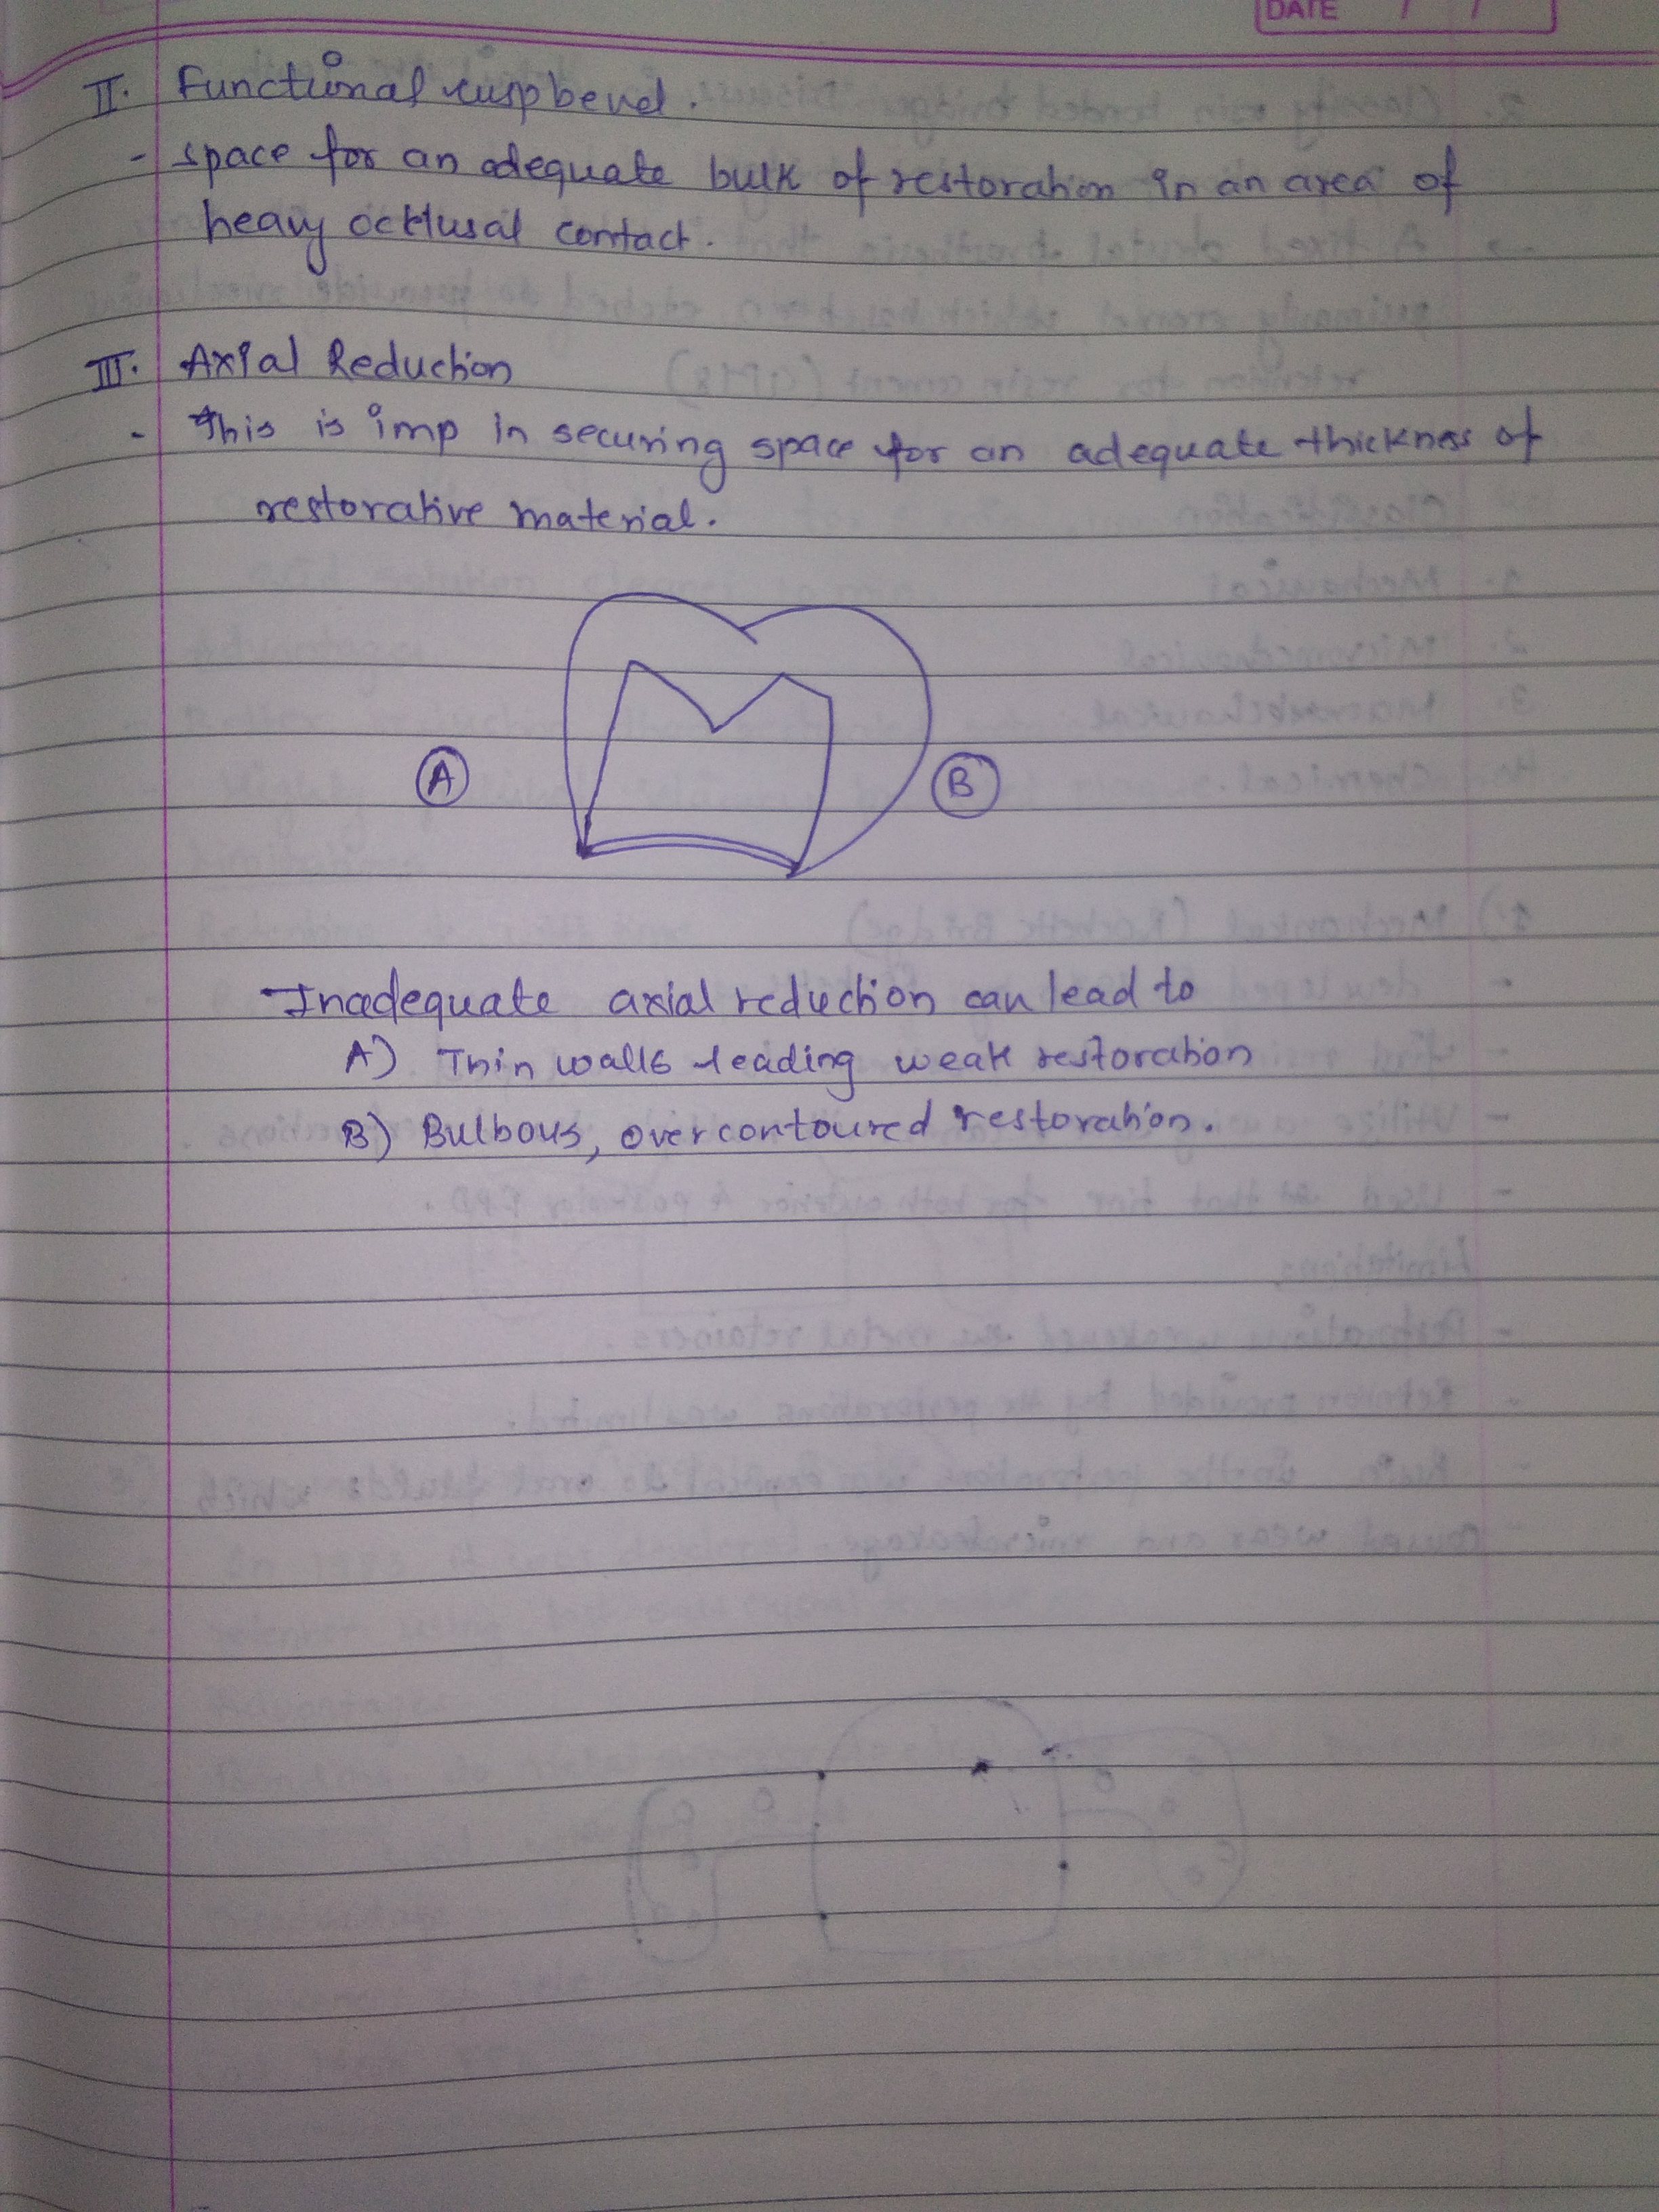 DATE / /
II. Functional cusp bevel.
- space for an adequate bulk of restoration in an area of
heavy occlusal contact.
III. Axial Reduction
- This is imp in securing space for an adequate thickness of
restorative material.
A
B
Inadequate axial reduction can lead to
A) Thin walls leading weak restoration
B) Bulbous, overcontoured restoration.